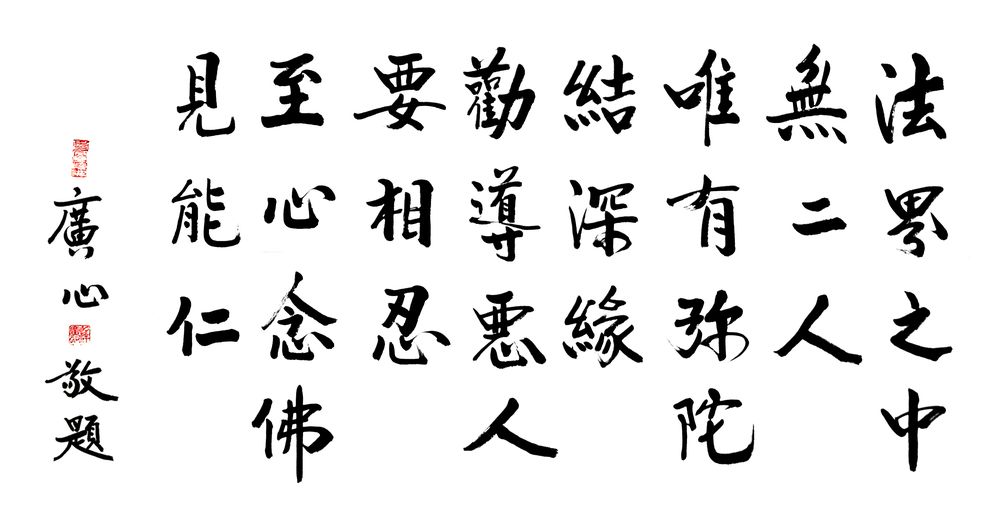 法界之中
無二人
唯有弥陀
結深緣
勸導悪人
要相忍
至心念佛
見能仁
廣心
敬題